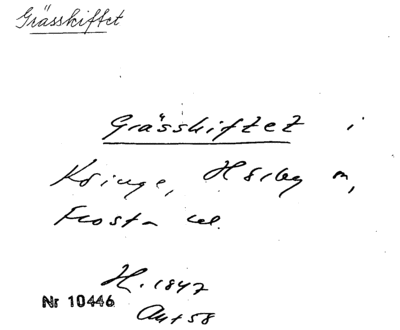 Grässkiftet
Grässkiftet i
Kvinge, Hörby m,
Frosta hd.
H. 1847
Nr 10446
Akt 58